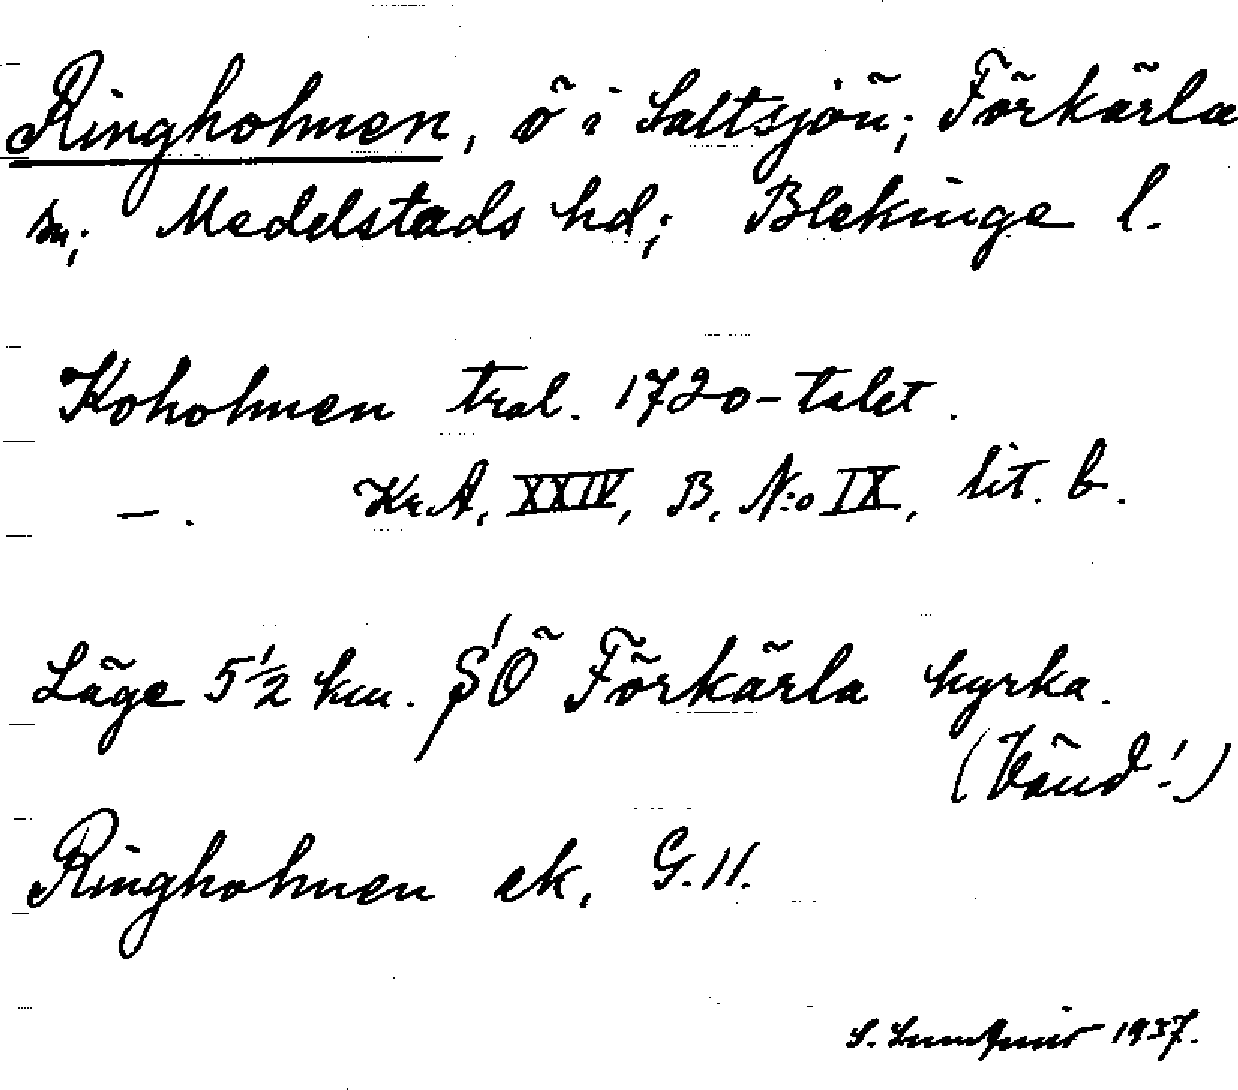 Ringholmen, ö i Saltsjön; Förkärla
sn; Medelstads hd; Blekinge l.
Koholmen tral. 1720-talet.
—. Kr.A. XXIV, B, N:o IX, lit. b.
Läge 5 1/2 km. SÖ Förkärla kyrka.
(Vänd!)
Ringholmen ek. G. 11.
S. Lundqvist 1937.